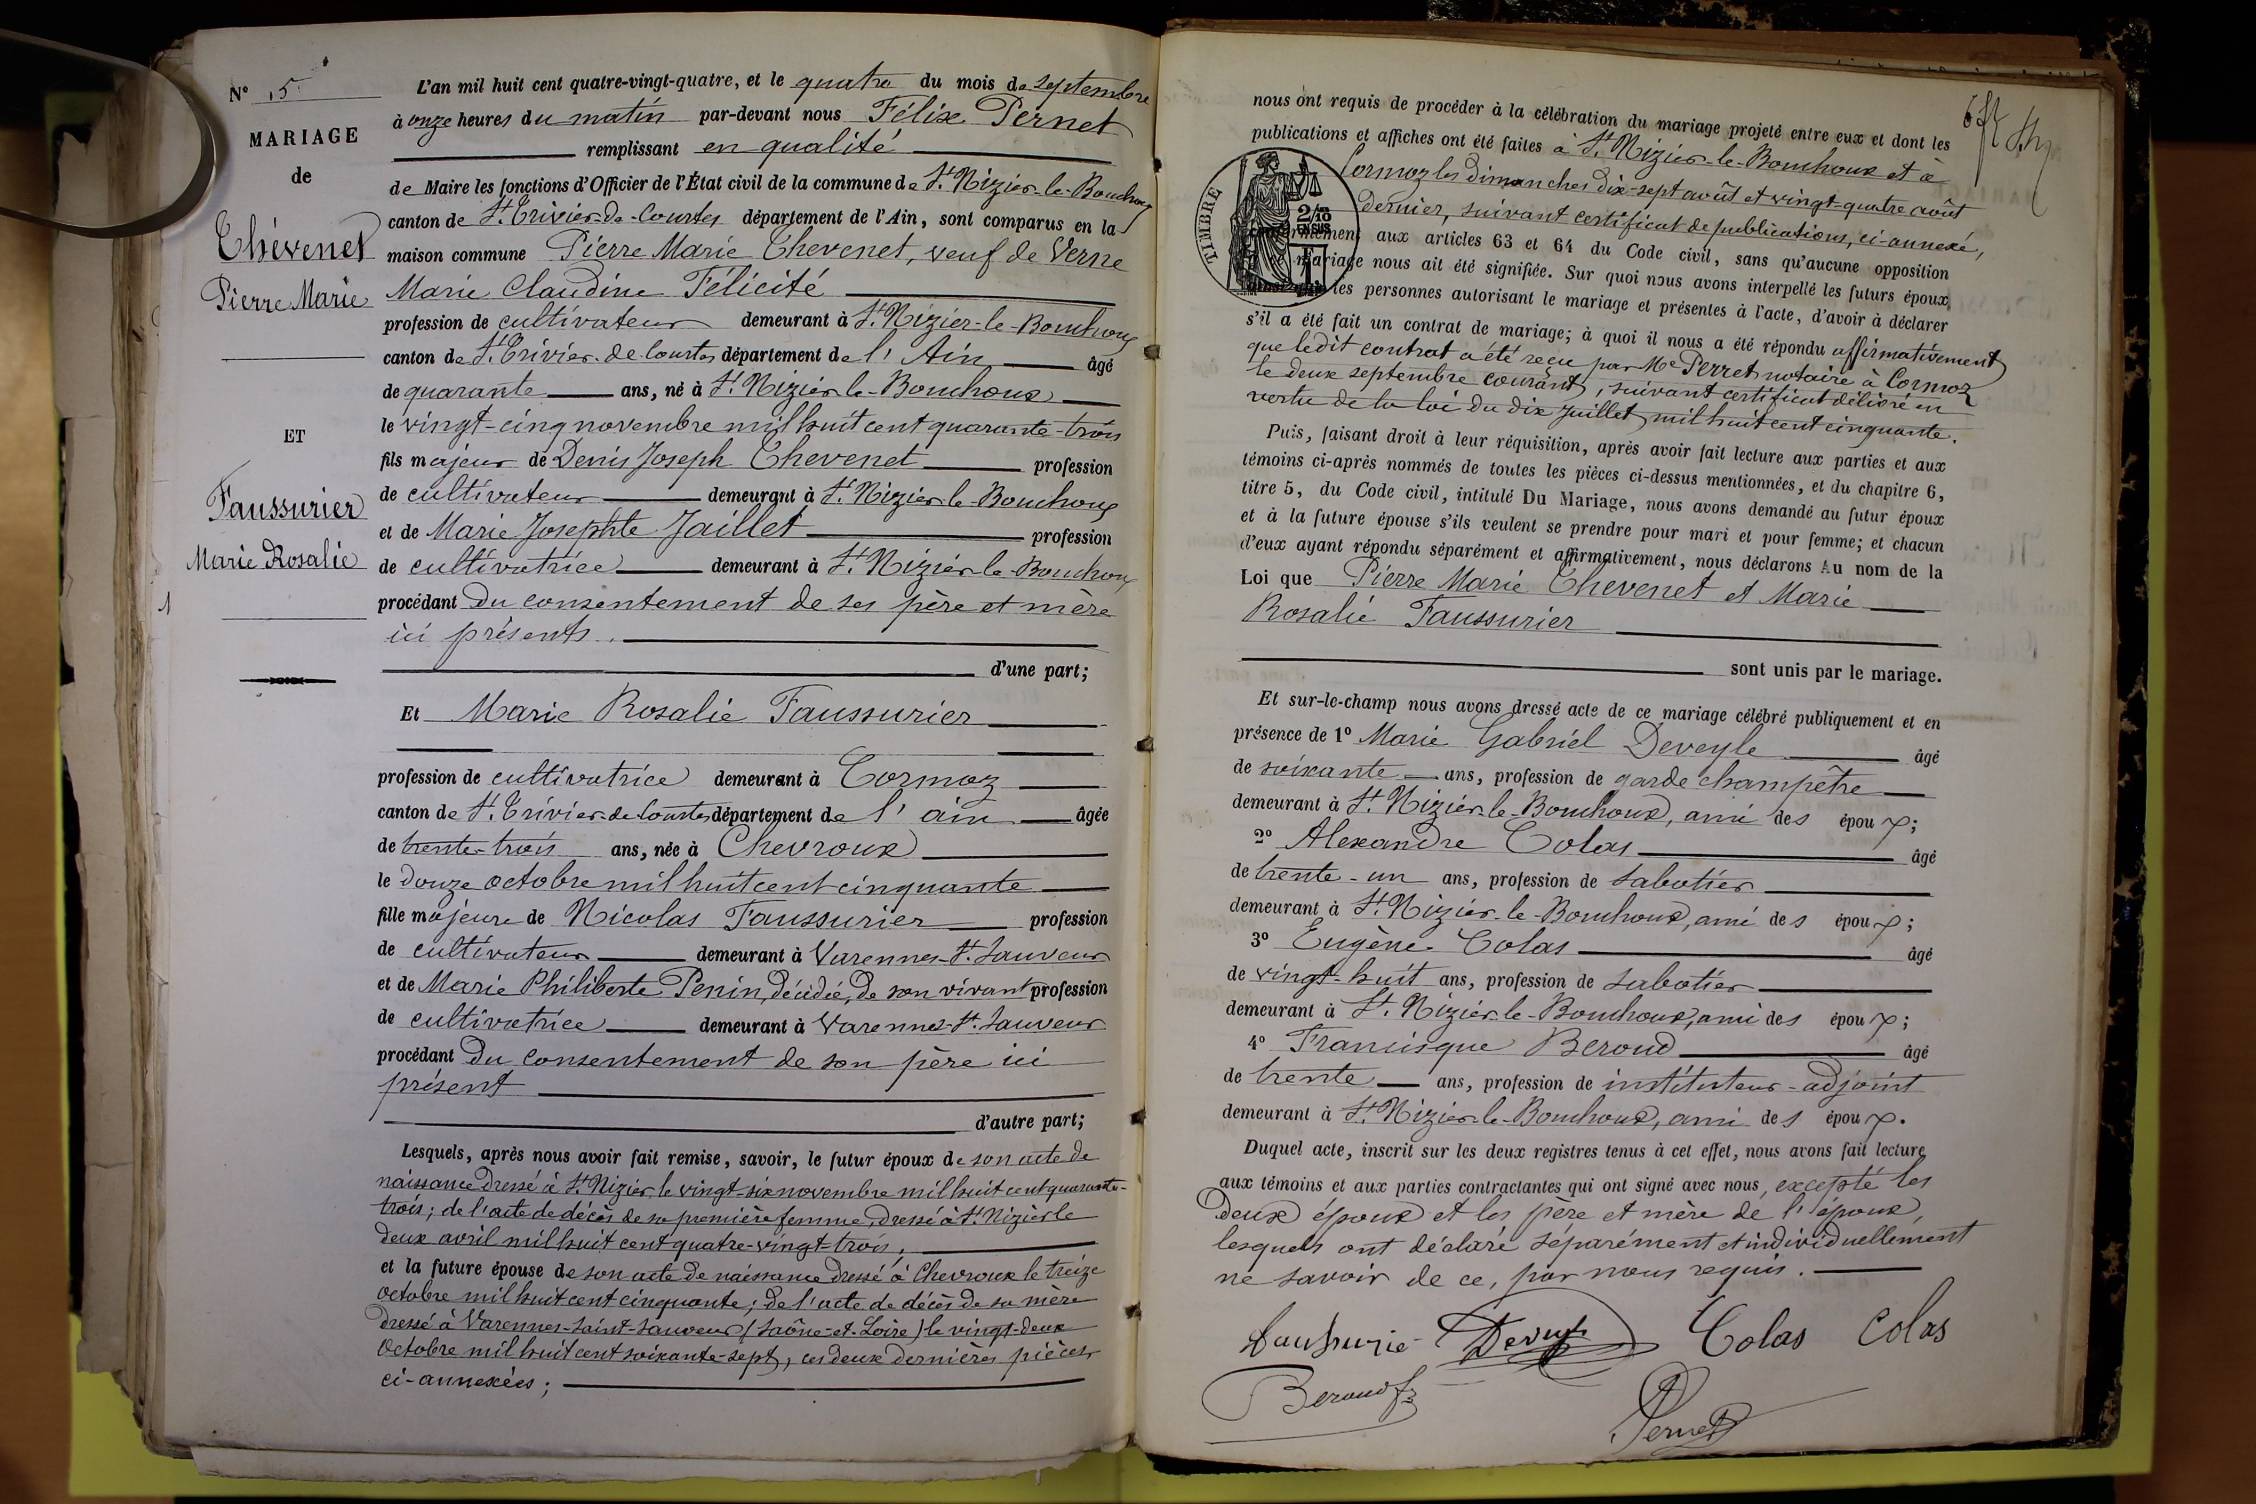 N° 5
MARIAGE
de
Thévenet
Pierre Marie
ET
Faussurier
Marie Rosalie
L'an mil huit cent quatre-vingt-quatre, et le quatre du mois de septembre
à onze heures du matin par-devant nous Félix Pernet
remplissant en qualité
de Maire les fonctions d'Officier de l'État civil de la commune de St Nizier-le-Bouchoux
canton de St Trivier-de-Courtes département de l'Ain, sont comparus en la
maison commune Pierre Marie Thevenet, veuf de Verne
Marie Claudine Félicité
profession de cultivateur demeurant à St Nizier-le-Bouchoux
canton de St Trivier-de-Courtes département de l'Ain âgé
de quarante ans, né à St Nizier-le-Bouchoux
le vingt-cinq novembre mil huit cent quarante-trois
fils majeur de Denis Joseph Thevenet profession
de cultivateur demeurant à St Nizier-le-Bouchoux
et de Marie Josephte Jaillet profession
de cultivatrice demeurant à St Nizier-le-Bouchoux
procédant du consentement de ses père et mère
ici présents.
d'une part;
Et Marie Rosalie Faussurier
profession de cultivatrice demeurant à Cormoz
canton de St Trivier-de-Courtes département de l'ain âgée
de trente-trois ans, née à Chevroux
le douze octobre mil huit cent cinquante
fille majeure de Nicolas Faussurier profession
de cultivateur demeurant à Varennes-St-Sauveur
et de Marie Philiberte Penin, décédée, de son vivant profession
de cultivatrice demeurant à Varennes-St-Sauveur
procédant du consentement de son père ici
présent
d'autre part;
Lesquels, après nous avoir fait remise, savoir, le futur époux de son acte de
naissance dressé à St Nizier, le vingt-six novembre mil huit cent quarante-
trois; de l'acte de décès de sa première femme, dressé à St Nizier le
deux avril mil huit cent quatre-vingt-trois,
et la future épouse de son acte de naissance dressé à Chevroux le treize
octobre mil huit cent cinquante; de l'acte de décès de sa mère
dressé à Varennes-Saint-Sauveur (Saône-et-Loire) le vingt-deux
octobre mil huit cent soixante-sept, ces deux dernières pièces
ci-annexées;
nous ont requis de procéder à la célébration du mariage projeté entre eux et dont les
publications et affiches ont été faites à St Nizier-le-Bouchoux et à
Cormoz les dimanches dix-sept août et vingt-quatre août
dernier, suivant certificat de publications, ci-annexé,
TIMBRE
2/10 EN SUS
aux articles 63 et 64 du Code civil, sans qu'aucune opposition
mariage nous ait été signifiée. Sur quoi nous avons interpellé les futurs époux,
les personnes autorisant le mariage et présentes à l'acte, d'avoir à déclarer
s'il a été fait un contrat de mariage; à quoi il nous a été répondu affirmativement
que ledit contrat a été reçu par Me Perret notaire à Cormoz
le deux septembre courant, suivant certificat délivré en
vertu de la loi du dix Juillet mil huit cent cinquante.
Puis, faisant droit à leur réquisition, après avoir fait lecture aux parties et aux
témoins ci-après nommés de toutes les pièces ci-dessus mentionnées, et du chapitre 6,
titre 5, du Code civil, intitulé Du Mariage, nous avons demandé au futur époux
et à la future épouse s'ils veulent se prendre pour mari et pour femme; et chacun
d'eux ayant répondu séparément et affirmativement, nous déclarons Au nom de la
Loi que Pierre Marie Thevenet et Marie
Rosalie Faussurier
sont unis par le mariage.
Et sur-le-champ nous avons dressé acte de ce mariage célébré publiquement et en
présence de 1° Marie Gabriel Deveyle âgé
de soixante ans, profession de garde champêtre
demeurant à St Nizier-le-Bouchoux, ami des époux;
2° Alexandre Colas âgé
de trente-un ans, profession de sabotier
demeurant à St Nizier-le-Bouchoux, ami des époux;
3° Eugène Colas âgé
de vingt-huit ans, profession de sabotier
demeurant à St Nizier-le-Bouchoux, ami des époux;
4° Francisque Beroud âgé
de trente ans, profession de instituteur-adjoint
demeurant à St Nizier-le-Bouchoux, ami des époux.
Duquel acte, inscrit sur les deux registres tenus à cet effet, nous avons fait lecture
aux témoins et aux parties contractantes qui ont signé avec nous, excepté les
deux époux et les père et mère de l'époux,
lesquels ont déclaré séparément et individuellement
ne savoir de ce, par nous requis.
Colas Colas
Beroud fs
Pernet